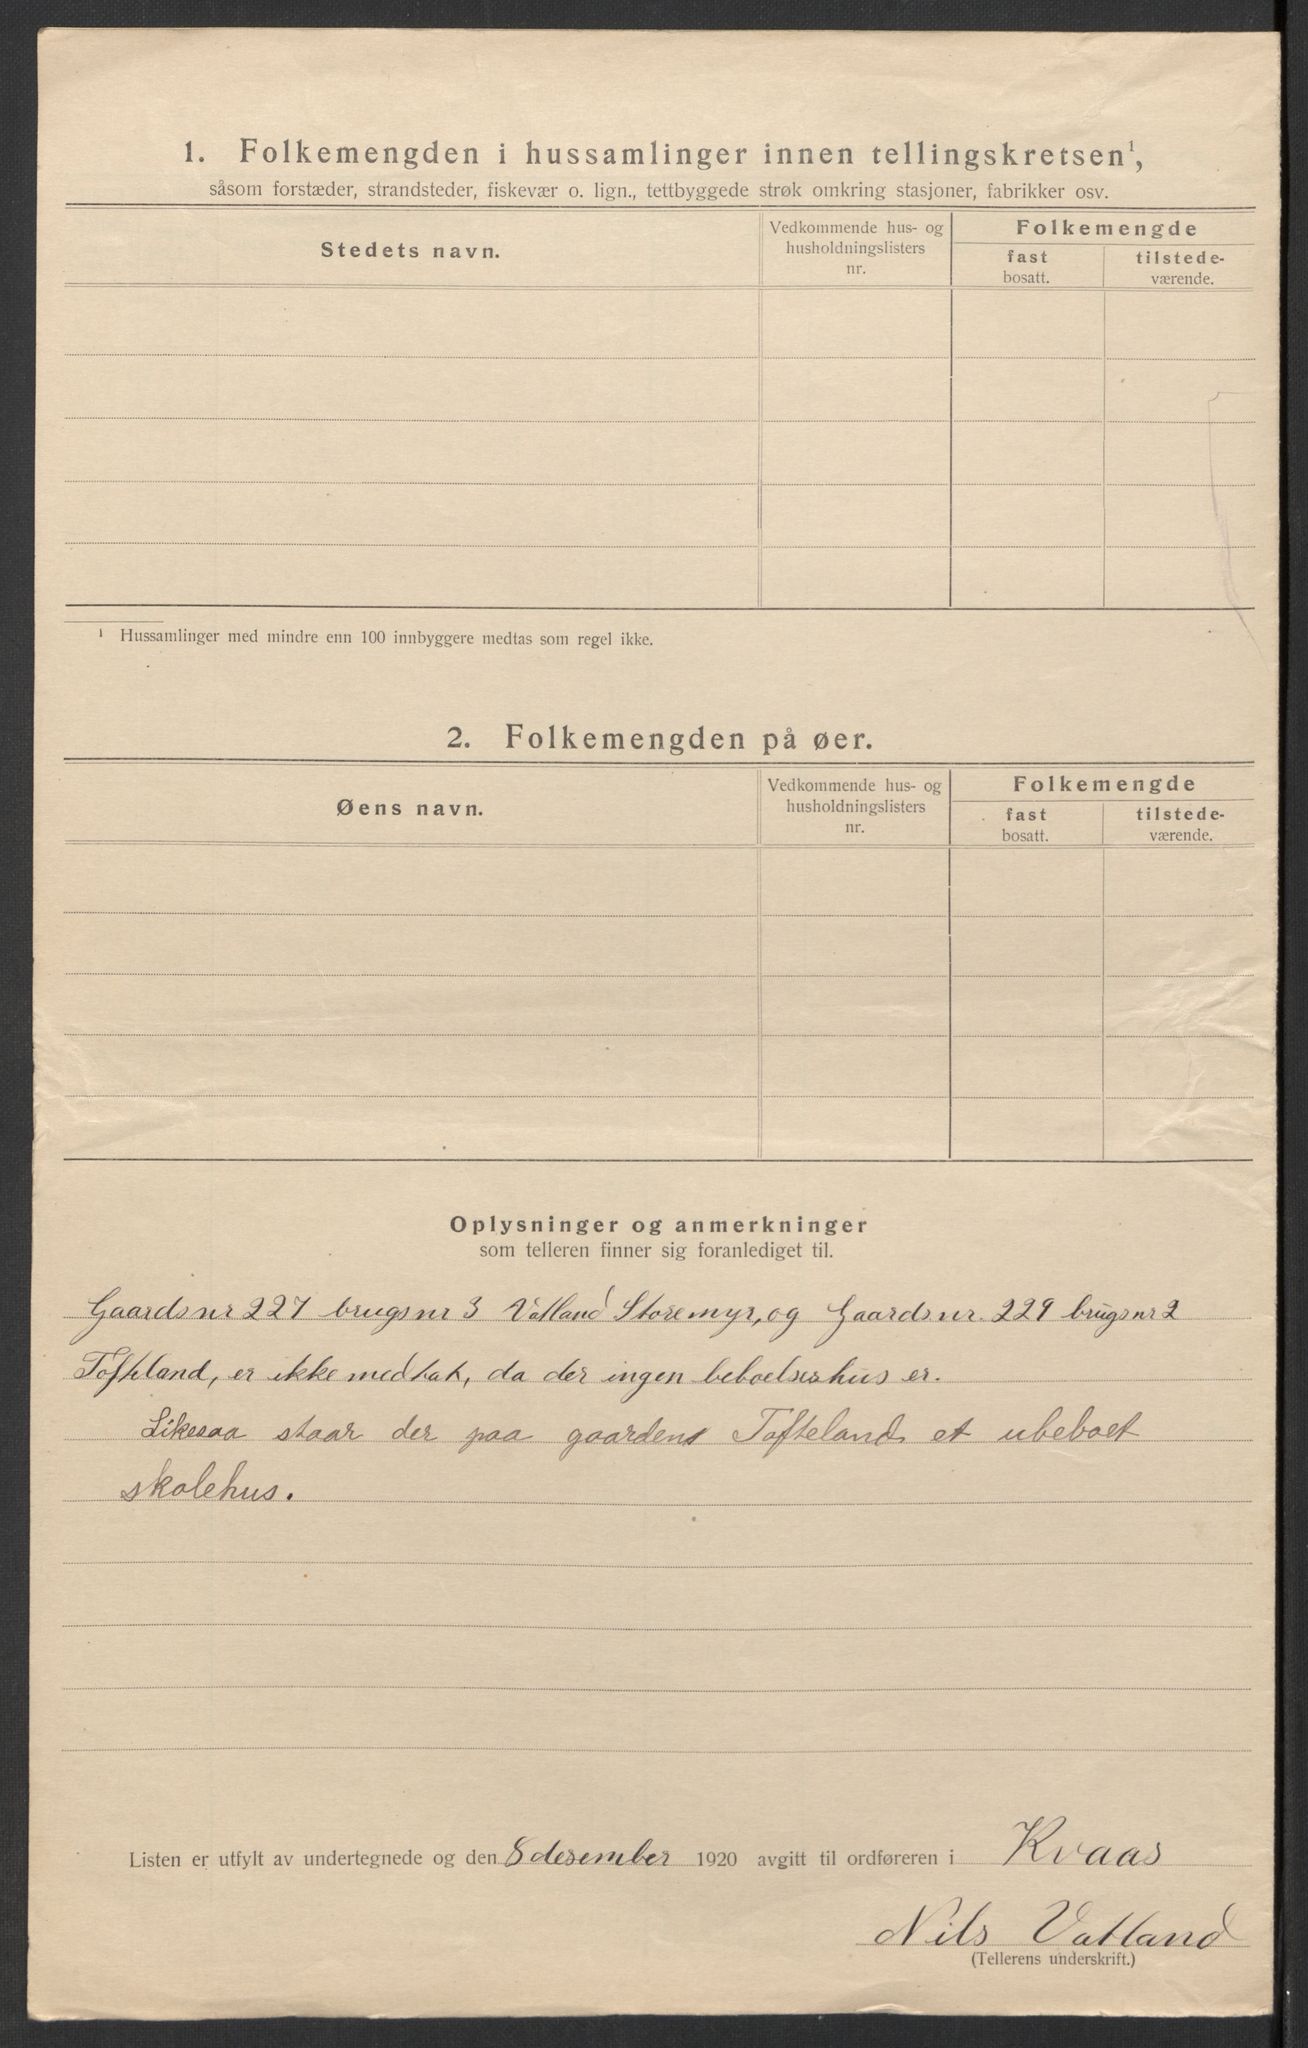 1. Folkemengden i hussamlinger innen tellingskretsen¹,
såsom forstæder, strandsteder, fiskevær o. lign., tettbyggede strøk omkring stasjoner, fabrikker osv.
Stedets navn.
Vedkommende hus- og
husholdningslisters
nr.
Folkemengde
fast
bosatt.
tilstede-
værende.
¹ Hussamlinger med mindre enn 100 innbyggere medtas som regel ikke.
2. Folkemengden på øer.
Øens navn.
Vedkommende hus- og
husholdningslisters
nr.
Folkemengde
fast
bosatt.
tilstede-
værende.
Oplysninger og anmerkninger
som telleren finner sig foranlediget til.
Gaardsnr 227 brugsnr 3 Vatland Storemyr, og Gaardsnr. 229 brugsnr 2
Tofteland, er ikke medtat, da der ingen beboelseshus er.
Likesaa staar der paa gaardens Tofteland et ubeboet
skolehus.
Listen er utfylt av undertegnede og den 8 desember 1920 avgitt til ordføreren i Kvaas
Nils Vatland
(Tellerens underskrift.)